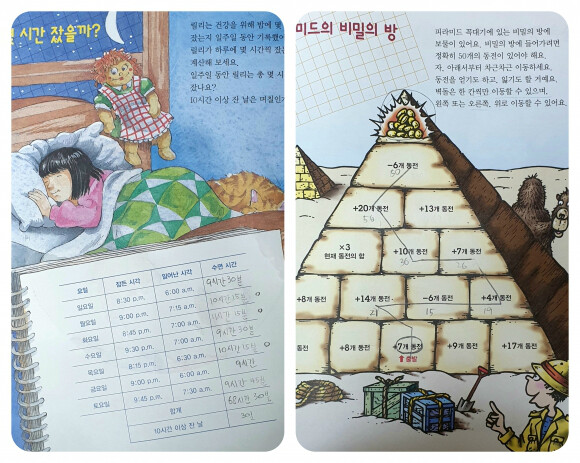 시간 잤을까?
릴리는 건강을 위해 밤에 몇
잤는지 일주일 동안 기록했
릴리가 하루에 몇 시간씩
계산해 보세요.
일주일 동안 릴리는 총 몇 시
잤나요?
10시간 이상 잔 날은 며칠인
요일 잠든 시각 일어난 시각 수면 시간
일요일 8:30 p.m. 6:00 a.m. 9시간 30분
월요일 9:00 p.m. 7:15 a.m. 10시간 15분
화요일 8:45 p.m. 7:00 a.m. 15분
수요일 9:30 p.m. 7:00 a.m. 9시간 30분
목요일 8:15 p.m. 6:30 a.m. 10시간 15분
금요일 9:00 p.m. 6:00 a.m. 9시간
토요일 9:45 p.m. 7:30 a.m. 9시간 45분
합계 68시간 30분
10시간 이상 잔 날 3일
미드의 비밀의 방
피라미드 꼭대기에 있는 비밀의 방에
보물이 있어요. 비밀의 방에 들어가려면
정확히 50개의 동전이 있어야 해요.
자, 아래에서부터 차근차근 이동하세요.
동전을 얻기도 하고, 잃기도 할 거예요.
벽돌은 한 칸씩만 이동할 수 있으며,
왼쪽 또는 오른쪽, 위로 이동할 수 있어요.
-6개 동전
50
+20개 동전 +13개 동전
56
×3 +10개 동전 +7개 동전
현재 동전의 합 36
+8개 동전 +14개 동전 -6개 동전 +4개 동전
21 15 19
동전 +8개 동전 +7개 동전 +9개 동전 +17개 동전
출발